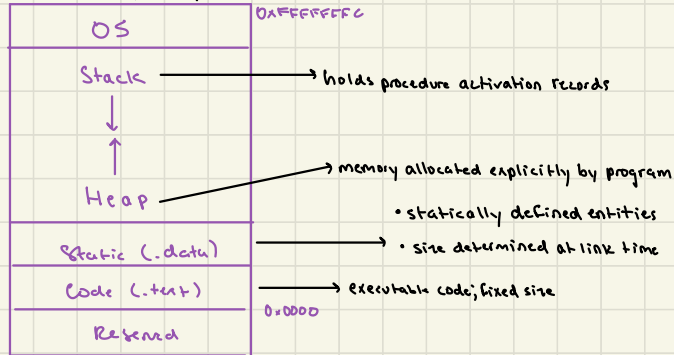 0xFFFFFFFC
OS
Stack → holds procedure activation records
Heap → memory allocated explicitly by program
• statically defined entities
Static (.data) → • size determined at link time
Code (.text) → executable code; fixed size
0x0000
Reserved